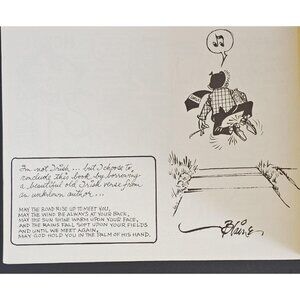 I'm not Irish... but I choose to
conclude this book by borrowing
a beautiful old Irish verse from
an unknown author...
MAY THE ROAD RISE UP TO MEET YOU,
MAY THE WIND BE ALWAYS AT YOUR BACK,
MAY THE SUN SHINE WARM UPON YOUR FACE,
AND THE RAINS FALL SOFT UPON YOUR FIELDS
AND UNTIL WE MEET AGAIN,
MAY GOD HOLD YOU IN THE PALM OF HIS HAND.
Blaine